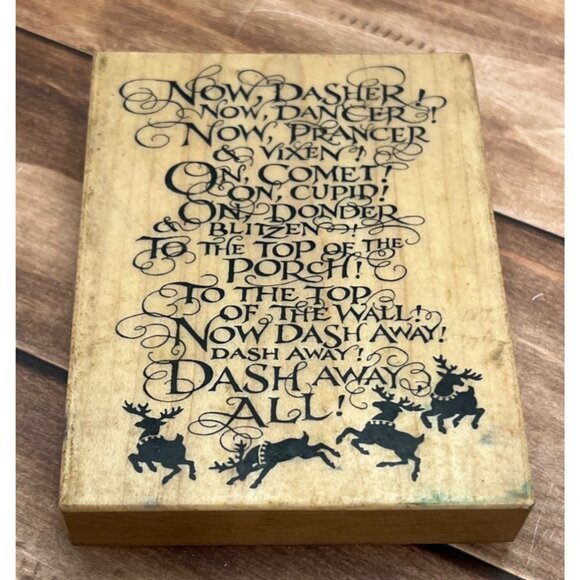 NOW, DASHER!
NOW, DANCER!
NOW, PRANCER
& VIXEN!
ON, COMET!
ON, CUPID!
ON, DONDER
& BLITZEN!
TO THE TOP OF THE
PORCH!
TO THE TOP
OF THE WALL!
NOW DASH AWAY!
DASH AWAY!
DASH AWAY,
ALL!